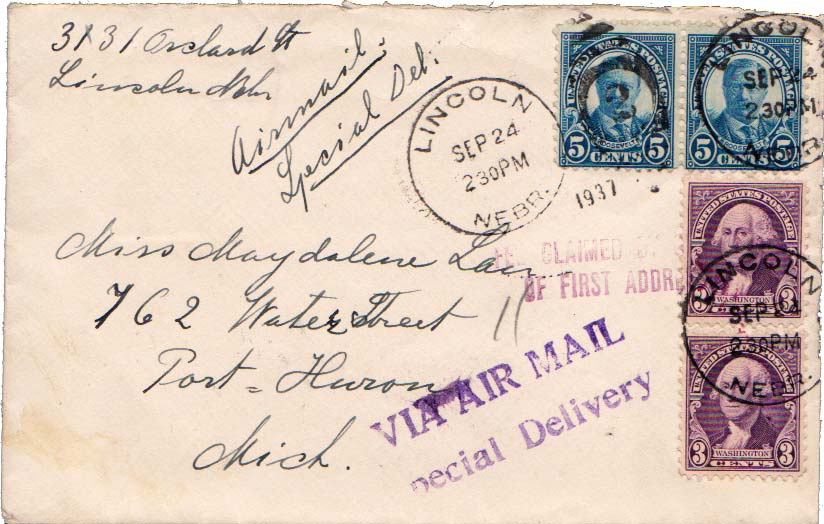 3131 Orchard St
Lincoln Nebr
Airmail
Special Del.
LINCOLN
SEP 24
230PM
NEBR.
1937
UNITED STATES POSTAGE
ROOSEVELT
5 CENTS 5
UNITED STATES POSTAGE
ROOSEVELT
5 CENTS 5
LINCOLN
SEP 24
230PM
NEBR.
Miss Maydalene
762 Water Street
Port-Huron
Mich.
FEE CLAIMED
OF FIRST ADDRE
VIA AIR MAIL
pecial Delivery
UNITED STATES POSTAGE
WASHINGTON
3 3
LINCOLN
SEP 24
230PM
NEBR.
UNITED STATES POSTAGE
WASHINGTON
3 CENTS 3